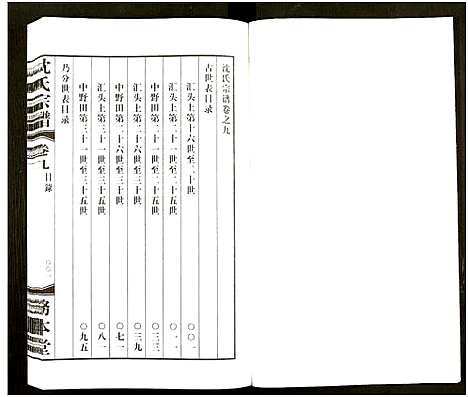 沈氏宗谱卷之九
古世表目录
汇头上第十六世至二十世 〇〇一
汇头上第二十一世至二十五世 〇一一
中野田第二十一世至二十五世 〇三三
汇头上第二十六世至三十世 〇三九
中野田第二十六世至三十世 〇七一
汇头上第三十一世至三十五世 〇八一
中野田第三十一世至三十五世 〇九五
乃分世表目录
沈氏宗譜
卷九
目錄
務本堂